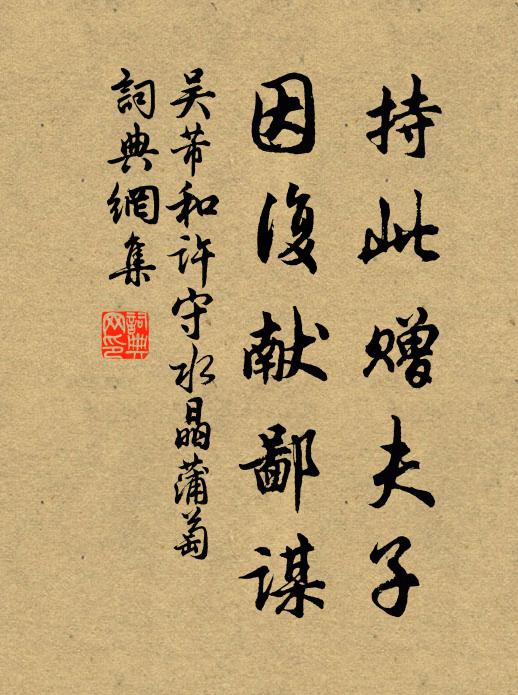 持此赠夫子
因復献鄙谋
吴芾和许守水晶蒲萄
詞典網集
詞典
网印